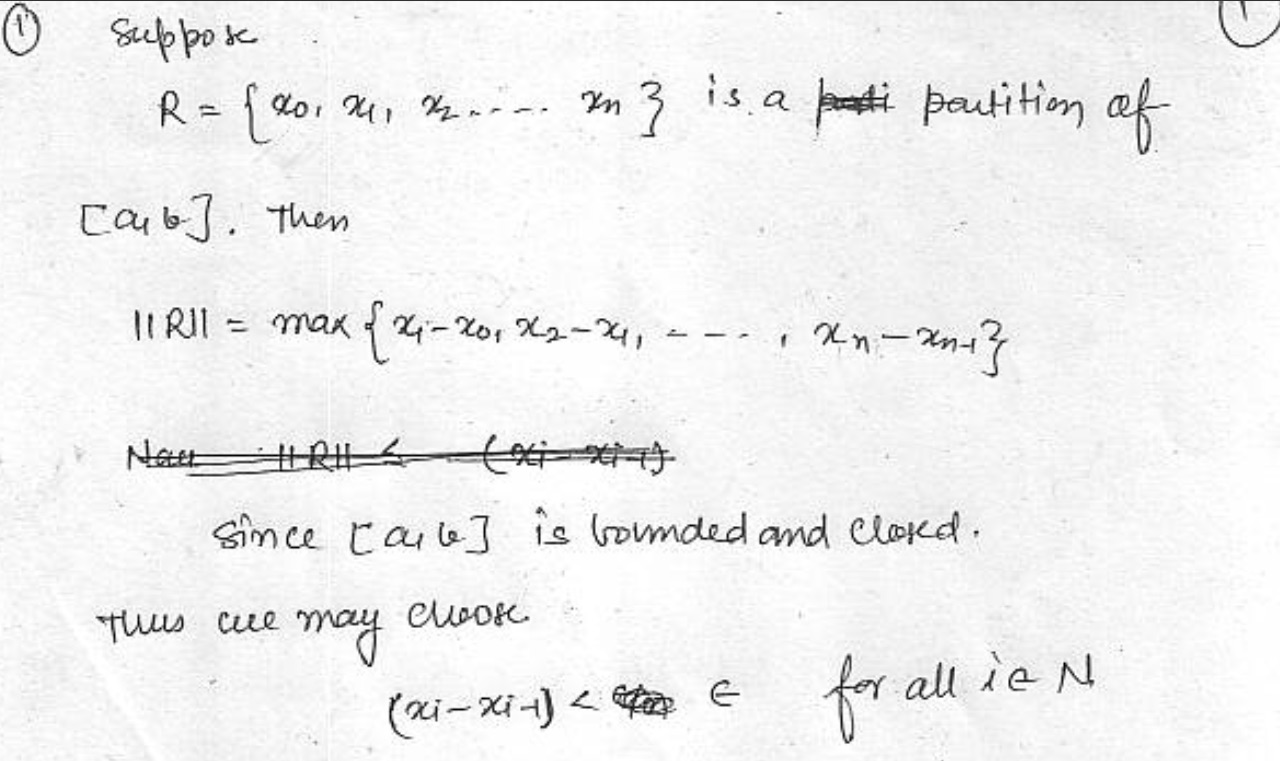 ① Suppose
R = { x₀, x₁, x₂ ..... xₙ } is a partition of
[a, b]. Then
||R|| = max { x₁ - x₀, x₂ - x₁, - - - - , xₙ - xₙ₋₁ }
Now ||R|| < (xᵢ - xᵢ₋₁)
Since [a, b] is bounded and closed.
Thus we may choose
(xᵢ - xᵢ₋₁) < ∈ for all i ∈ N